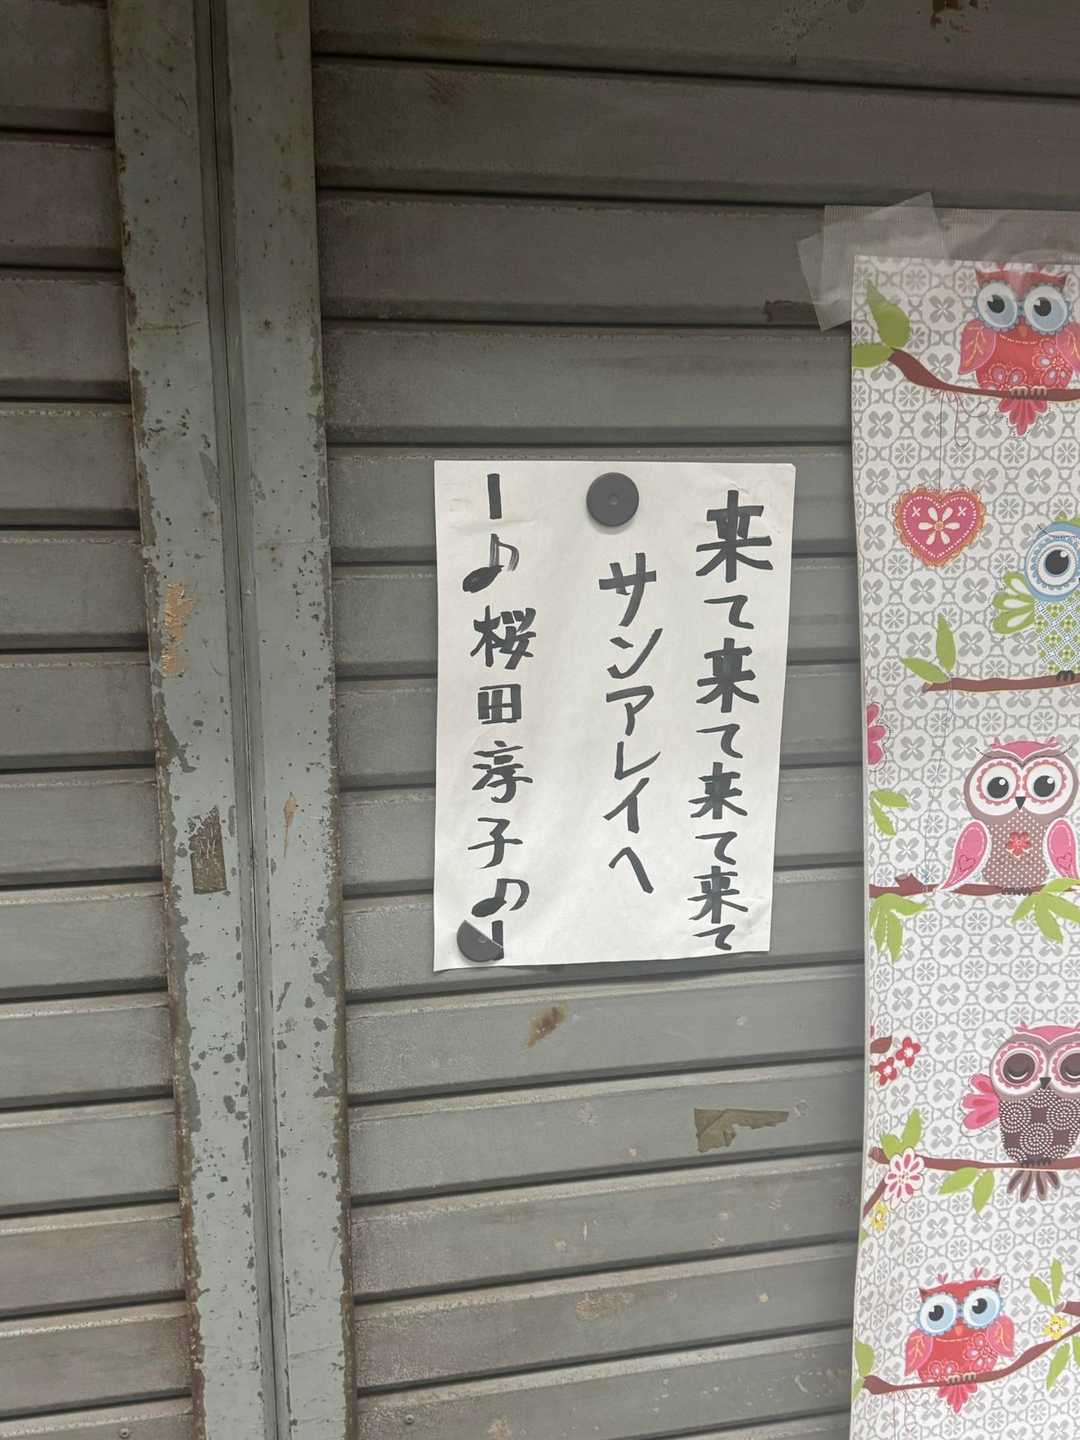 来て来て来て来て
サンアレイへ
ー♪桜田淳子の♪ー